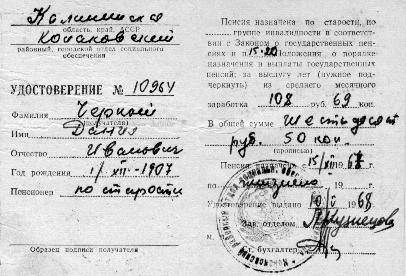 Калининская
область, край, АССР
Конаковский
районный, городской отдел социального
обеспечения
УДОСТОВЕРЕНИЕ № 10964
Фамилия Черный
Имя Данил
Отчество Иванович
Год рождения 1/XII-1907
Пенсионер по старости
Образец подписи получателя
Пенсия назначена по старости, по
группе инвалидности в соответствии
с Законом о государственных пенсиях
и п. 15-20 Положения о порядке
назначения и выплаты государственных
пенсий; за выслугу лет (нужное подчеркнуть)
из среднего месячного
заработка 108 руб. 69 коп.
В общей сумме Шестьдесят
руб. 50 коп.
(прописью)
Пенсия назначена с 15/XII 1967 г.
по пожизненно 19 г.
Удостоверение выдано 10/I 1968
Зав. отделом Кузнецова
М.
Ст. бухгалтер